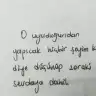 O uyandığından
yapacak hiçbir şeyim k
diye düşünüp sonraki
sevdaya daldı.